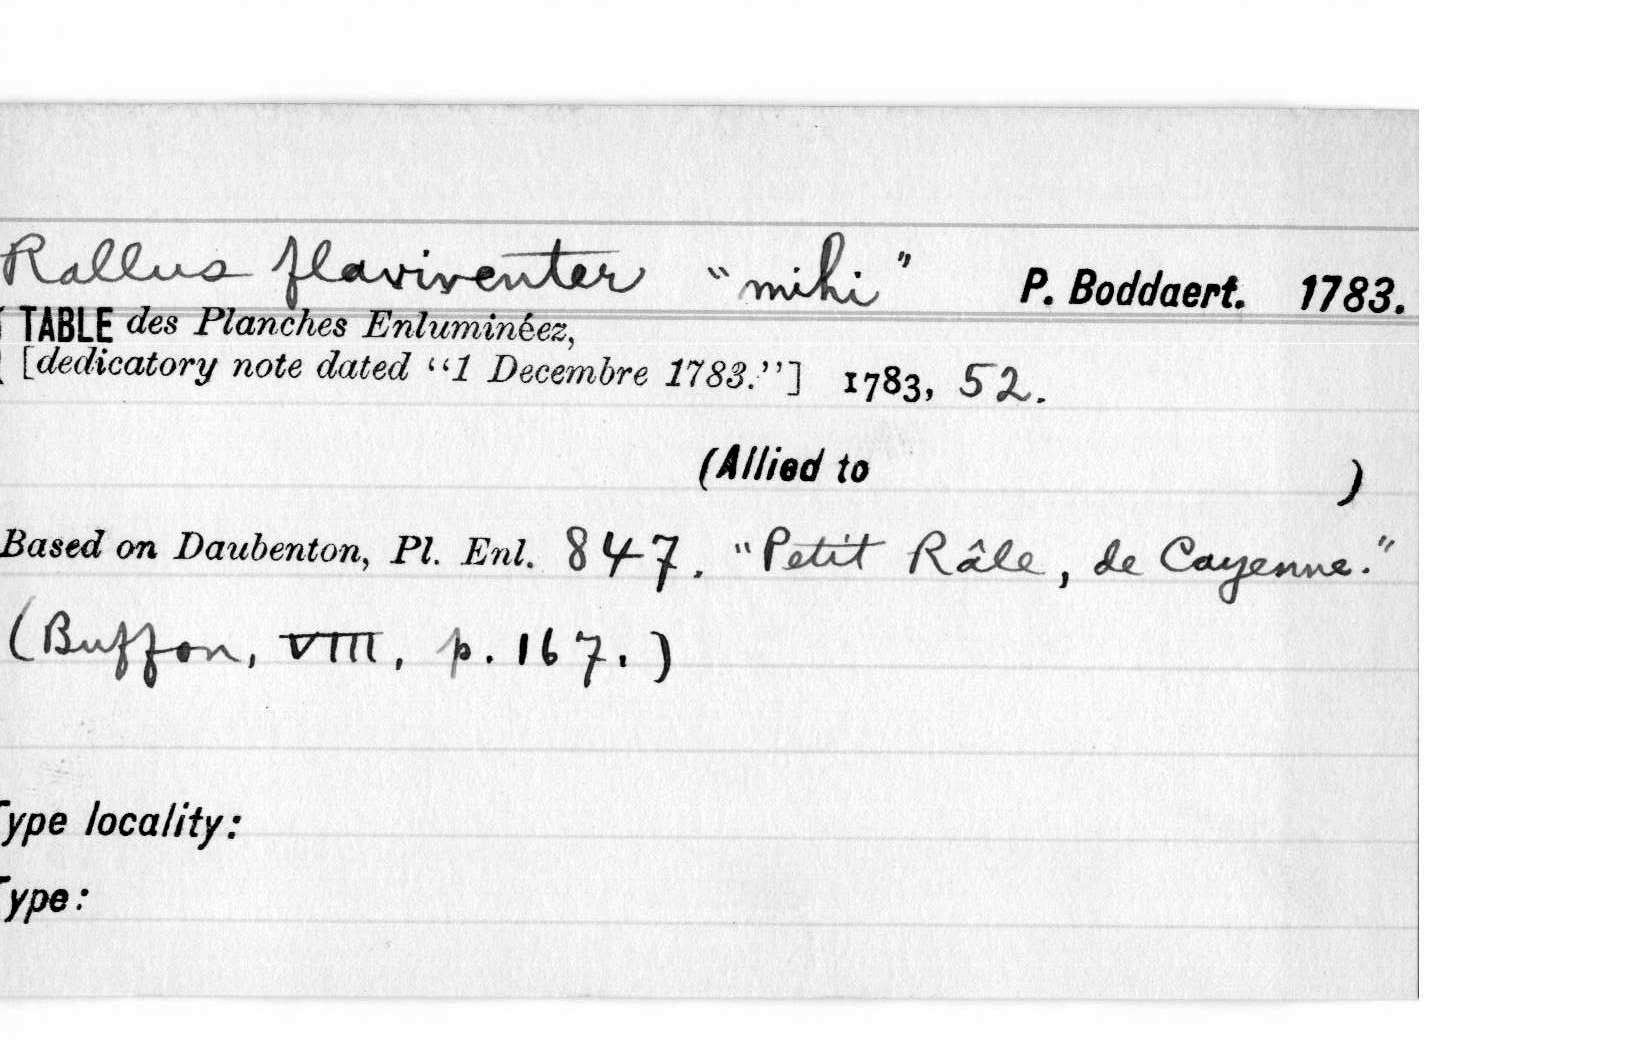 Rallus flaviventer "mihi" P. Boddaert. 1783.
TABLE des Planches Enluminéez,
[dedicatory note dated "1 Decembre 1783."] 1783, 52.
(Allied to )
Based on Daubenton, Pl. Enl. 847. "Petit Râle, de Cayenne."
(Buffon, VIII, p. 167.)
Type locality:
Type: